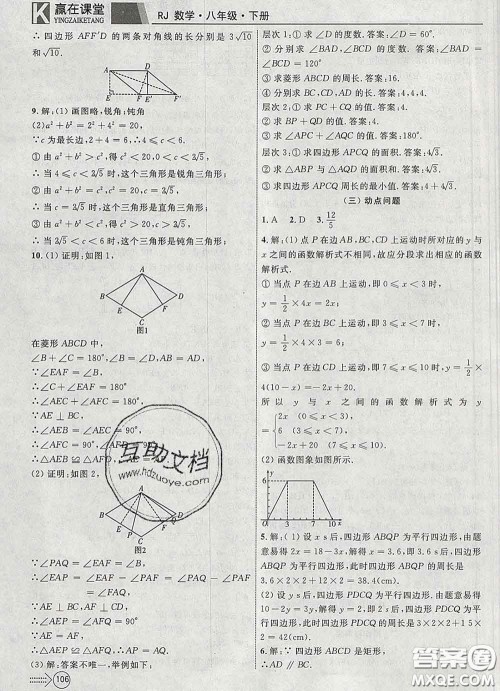 K 赢在课堂
YINGZAIKETANG
RJ 数学·八年级·下册
∴四边形 AFF′D 的两条对角线的长分别是 3√10
和√10.
A D
E F E′ F′
9. 解:(1)画图略,锐角;钝角
(2)a²+b²=2²+4²=20,
∵c 为最长边,2+4=6,∴4≤c<6.
①由 a²+b²>c²,得 c²<20,0<c<2√5,
∴当 4≤c<2√5时,这个三角形是锐角三角形;
②由 a²+b²=c²,得 c²=20,c=2√5,
∴当 c=2√5时,这个三角形是直角三角形;
③由 a²+b²<c²,得 c²>20,c>2√5,
∴当 2√5<c<6 时,这个三角形是钝角三角形;
10. (1)证明:如图 1,
A
B D
E F
C
图1
在菱形 ABCD 中,
∠B+∠C=180°,∠B=∠D,AB=AD,
∵∠EAF=∠B,
∴∠C+∠EAF=180°
∴∠AEC+∠AFC=180°,
∵AE⊥BC,
∴∠AEB=∠AEC=90°,
∴∠AFC=90°,∠AFD=90°,
∴△AEB≌△AFD,∴AE=AF.
(2)证明:如图 2,
A
B D
E F
C
图2
∵∠PAQ=∠EAF=∠B,
∴∠EAP=∠EAF-∠PAF=∠PAQ-∠PAF
=∠FAQ,
∵∠AEP=∠AFQ=90°,
∵AE=AF,
∴△AEP≌△AFQ,
∴AP=AQ.
(3)解:答案不唯一,举例如下:
106
层次 1:①求∠D 的度数. 答案:60°.
②分别求∠BAD,∠BCD 的度数. 答案:
120°,120°.
③求菱形 ABCD 的周长. 答案:16.
④分别求 BC,CD,AD 的长. 答案:4,4,4.
层次 2:①求 PC+CQ 的值. 答案:4.
②求 BP+QD 的值. 答案:4.
③求∠APC+∠AQC 的值. 答案:180°.
层次 3:①求四边形 APCQ 的面积. 答案:4√3.
②求△ABP 与△AQD 的面积和. 答案:4√3.
③求四边形 APCQ 的周长的最小值. 答案:4+4√3.
(三)动点问题
1. A 2. D 3. 12/5
4. 解:(1)点 P 在边 AB,BC,CD 上运动时所对应的 y 与
x 之间的函数解析式不相同,故应分段求出相应的函数
解析式.
①当点 P 在边 AB 上运动,即 0≤x<3 时,
y=1/2×4x=2x;
②当点 P 在边 BC 上运动,即 3≤x<7 时,
y=1/2×4×3=6;
③当点 P 在边 CD 上运动,即 7≤x≤10 时,y=1/2×
4(10-x)=-2x+20.
所以 y 与 x 之间的函数解析式为 y=
{2x (0≤x<3)
6 (3≤x<7)
-2x+20 (7≤x≤10).
(2)函数图象如图所示.
y
6
O 3 7 10 x
5. 解:(1)设 x s 后,四边形 ABQP 为平行四边形,由题
意易得 2x=18-3x,解得 x=3.6,即 3.6 s 后,四边形
ABQP 为平行四边形,此时四边形 ABQP 的周长是
3.6×2×2+12×2=38.4(cm).
(2)设 y s 后,四边形 PDCQ 为平行四边形. 由题意易得
10-2y=3y,解得 y=2,即 2 s 后,四边形 PDCQ 为
平行四边形,此时四边形 PDCQ 的周长是 3×2×2+15
×2=42(cm).
6. 解:∵四边形 ABCD 是矩形,
∴AD∥BC.
互助文档
www.hdzuoye.com
答案圈
MXQE.COM